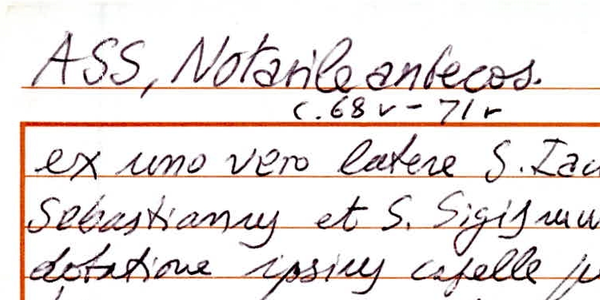 ASS, Notarile antecos.
c. 68 v - 71 r
ex uno vero latere S.
Sebastianus et S.
dotatione ipsius capelle